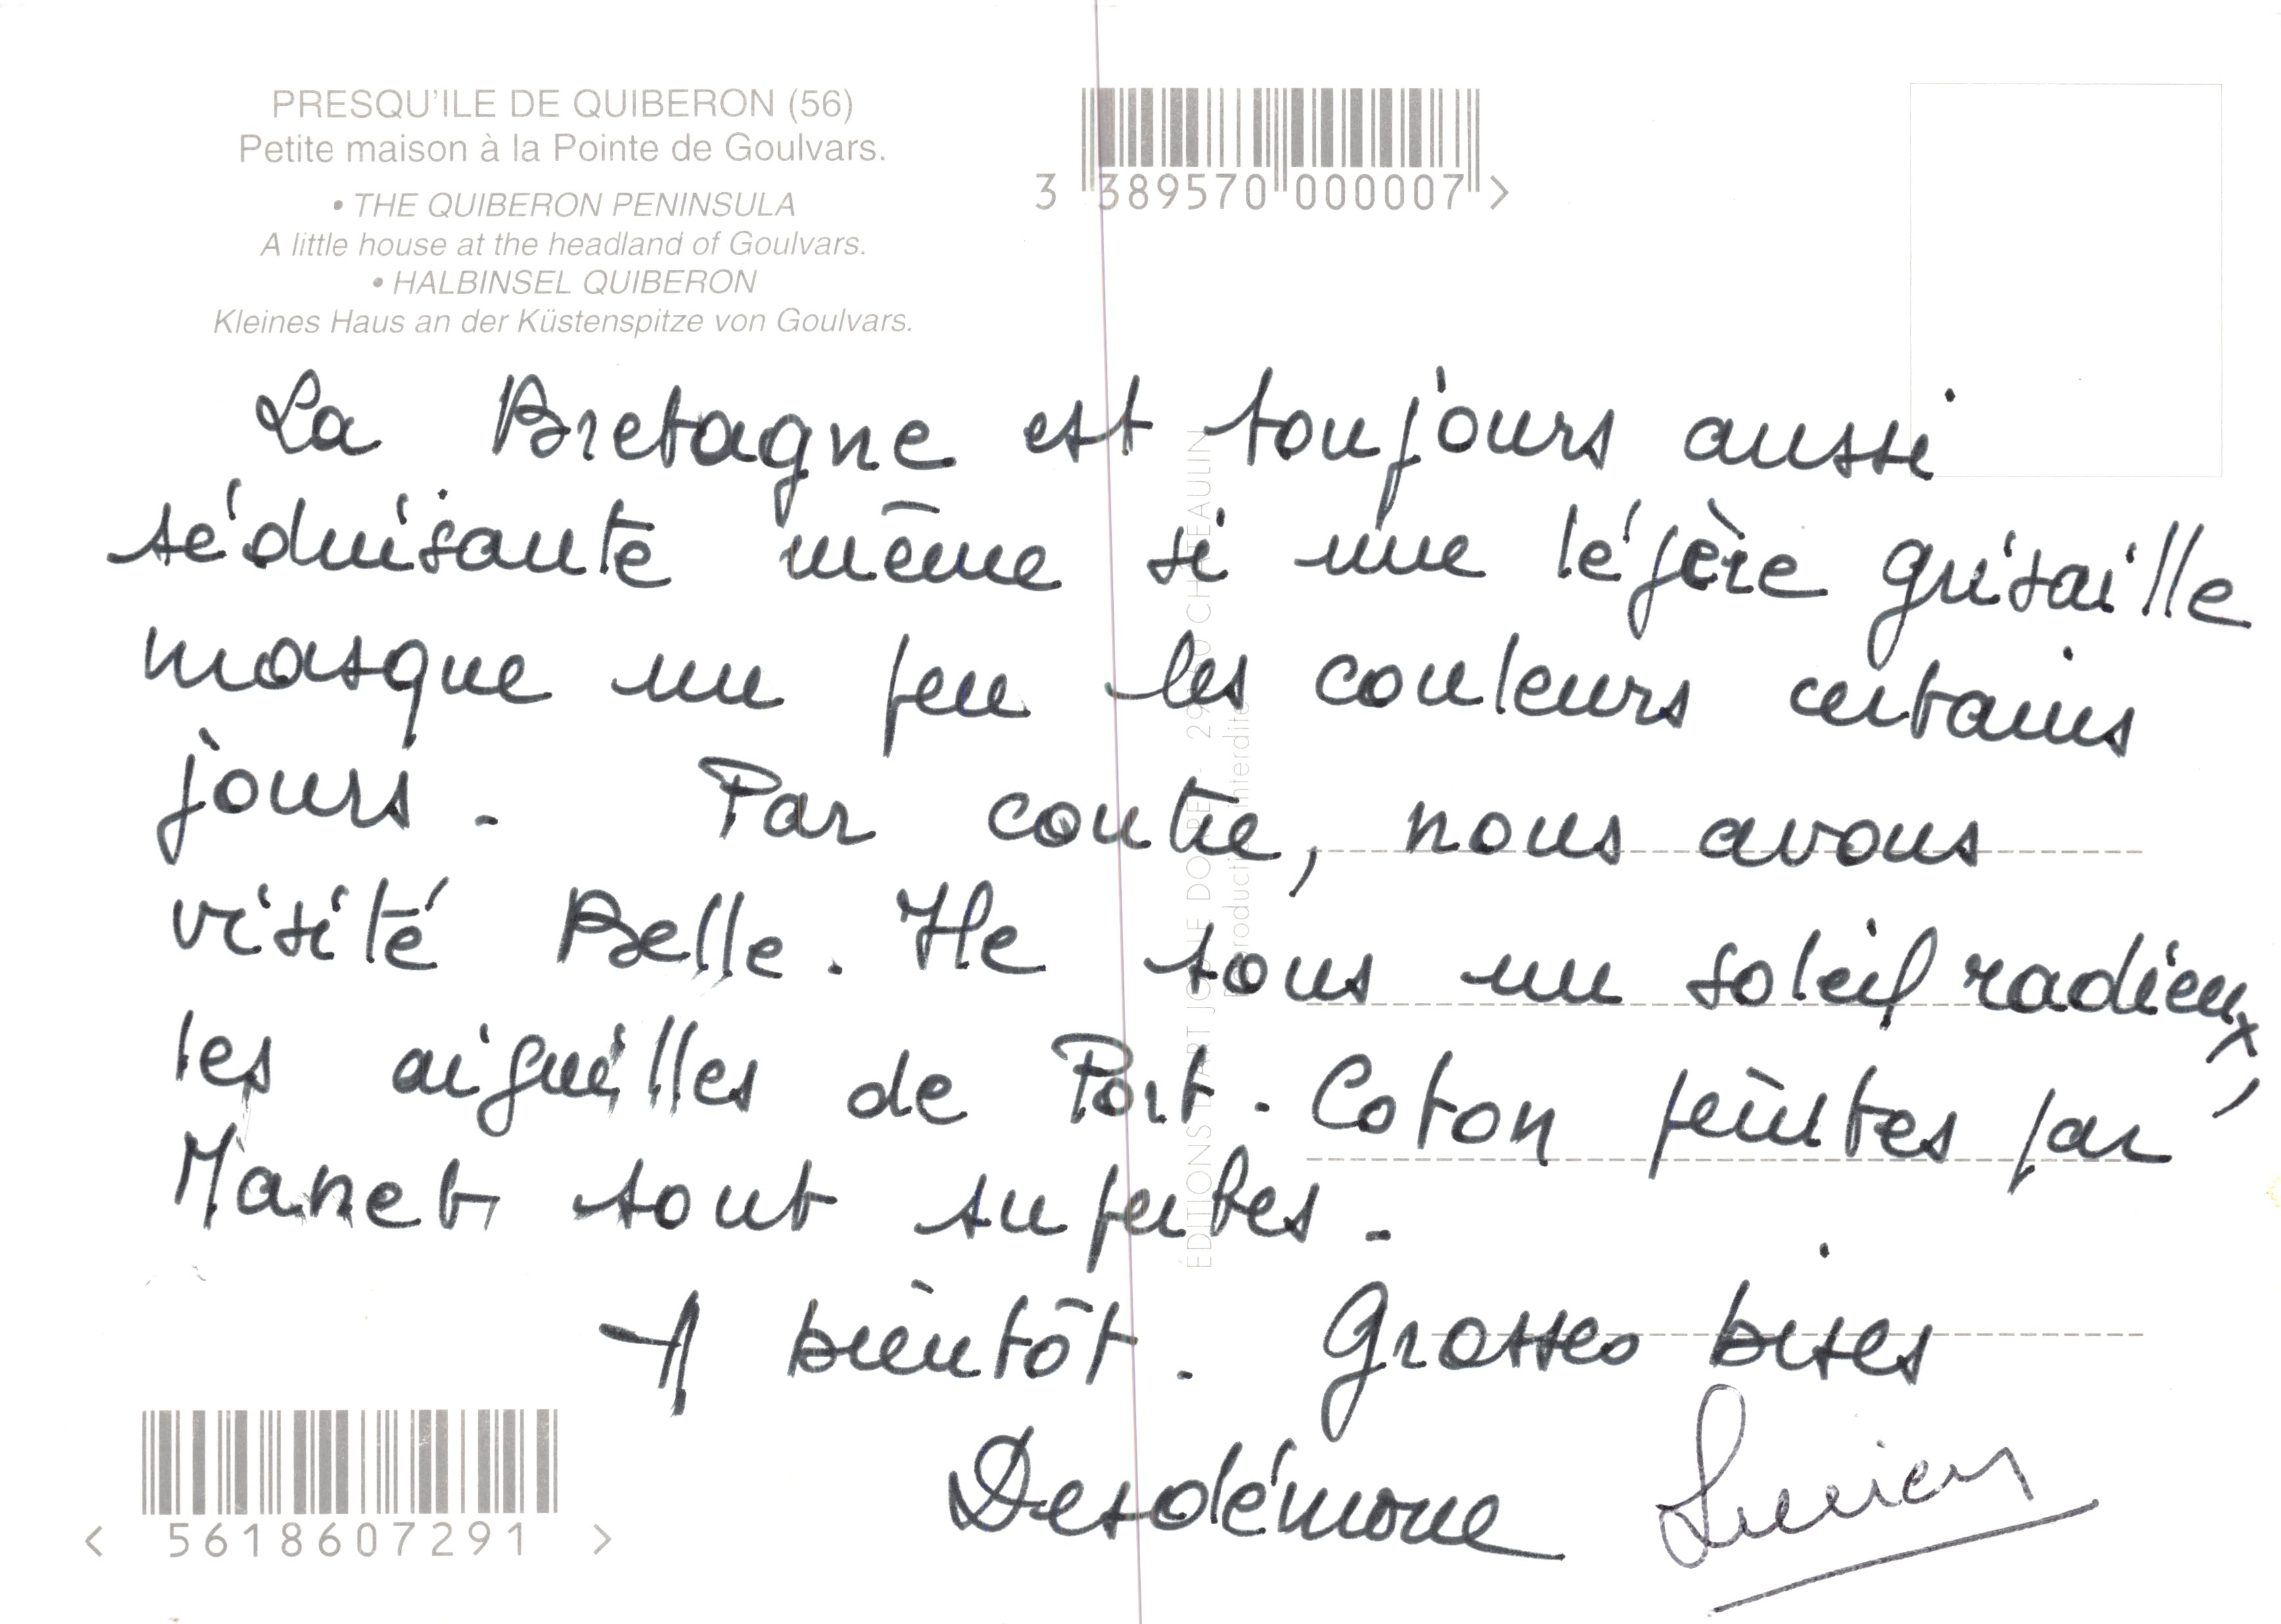 PRESQU'ILE DE QUIBERON (56)
Petite maison à la Pointe de Goulvars.
• THE QUIBERON PENINSULA
A little house at the headland of Goulvars.
• HALBINSEL QUIBERON
Kleines Haus an der Küstenspitze von Goulvars.
3 389570 000007 >
La Bretagne est toujours aussi
séduisante même si une légère grisaille
masque un peu les couleurs certains
jours. Par contre, nous avons
visité Belle-Ile sous un soleil radieux,
les aiguilles de Port-Coton peintes par
Manet sont superbes.
A bientôt. Grosses bises
Desdémone Lucien
< 5618607291 >
ÉDITIONS D'ART
CHATEAULIN
interdite